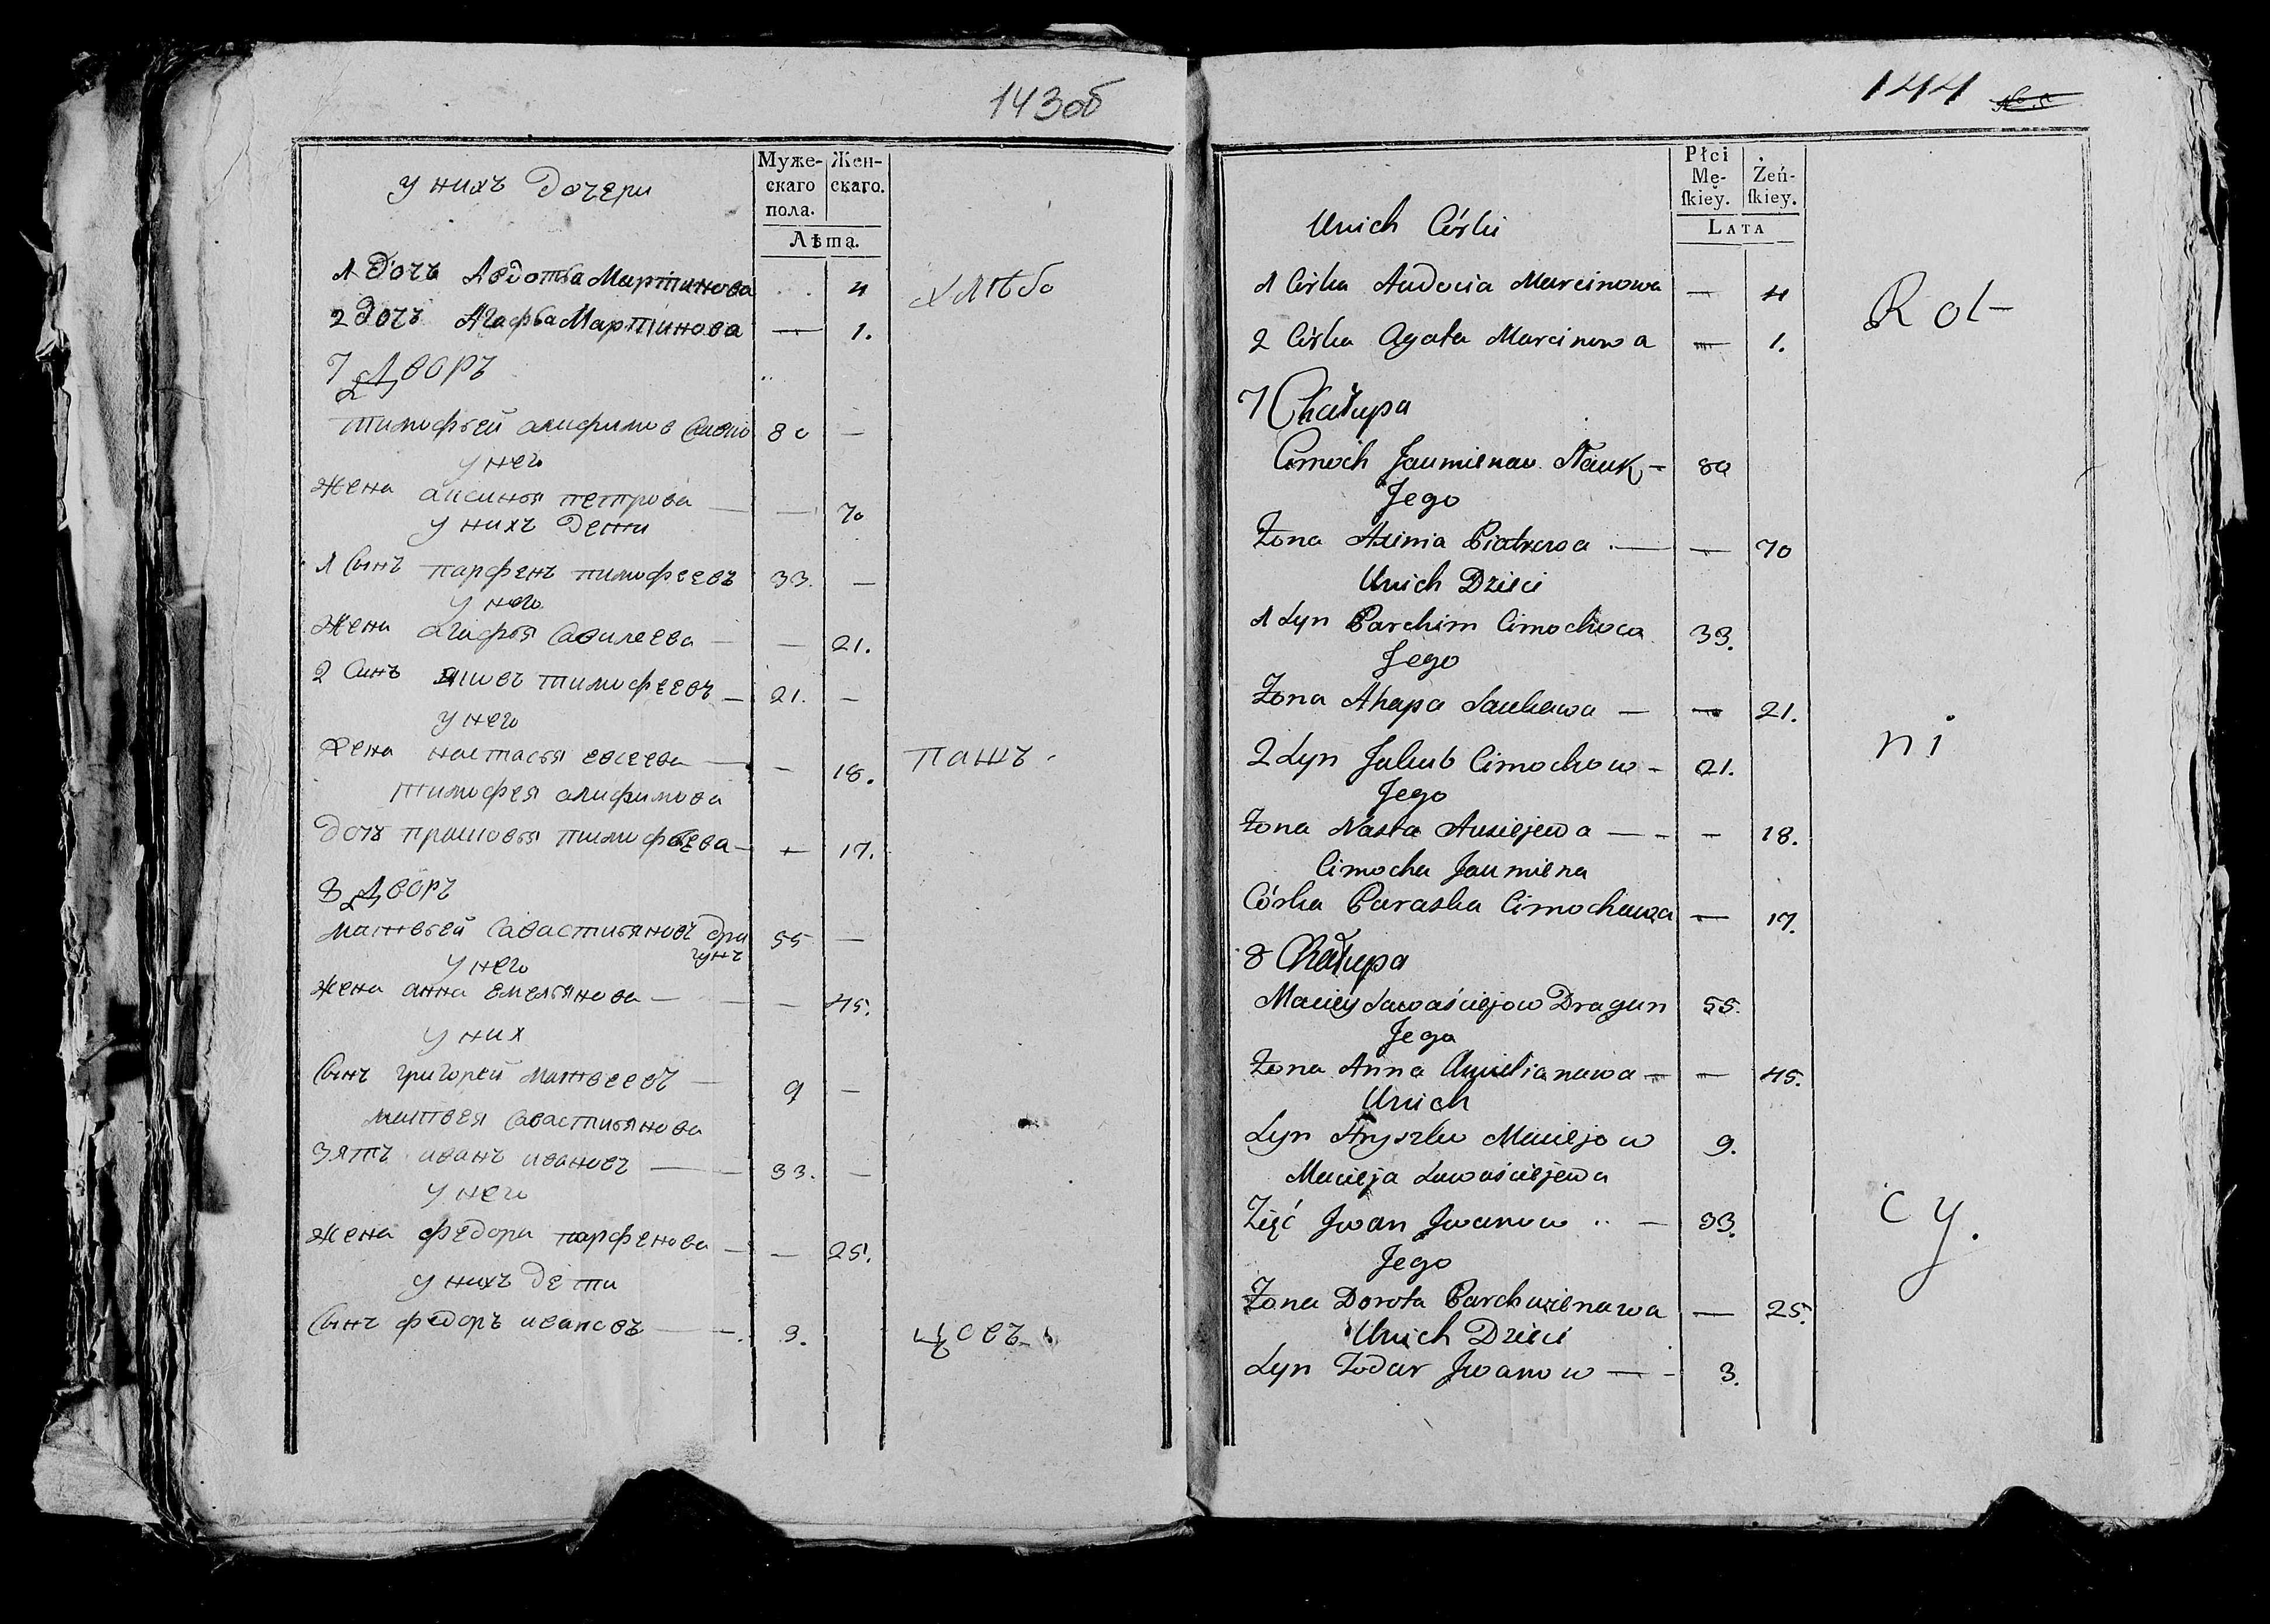 143об
Муже-
скаго
пола.
Жен-
скаго.
Лѣта.
у нихъ дочери
1 дочь Авдотьа Мартинова . . 4 хлѣбо
2 дочь Агафьа Мартинова — 1.
7 Дворъ
тимофьей
80 —
у него
жена аксинья петрова — — 70
у нихъ дети
1 Сынъ парфенъ тимофеевъ 33. —
у него
жена агафья Савилеева — — 21.
2 Синъ яковъ тимофеевъ — 21. —
у него
жена настасья евсеева — — 18. пашъ
тимофея
дочъ прасковья тимофьева — — 17.
8 Дворъ
матвьей Савастиьяновъ дра 55 —
гунъ
у него
жена анна емельянова — — 45.
у них
Сынъ григорей матвеевъ — 9 —
матвея Савастиьянова
зять иванъ ивановъ — 33. —
у него
жена федора парфенова — — 25.
у нихъ дети
Сынъ федоръ ивановъ — 3. цовъ
144
№ 5
Płci
Mę-
ſkiey.
Żeń-
ſkiey.
LATA
Unich Córki
1 Córka Audocia Marcinowa — 4 Rol-
2 Córka Agata Marcinowa — 1.
7 Chałupa
Cimoch Jaumienau 80
Jego
Żona Axinia Piatrowa — — 70
Unich Dzieci
1 Syn Parchim Cimochowa 33.
Jego
Żona Ahapa Saulewa — — 21.
2 Syn Jakub Cimochow - 21. ni
Jego
Żona Nasta Ausiejewa — - — 18.
Cimocha Jaumiena
Córka Paraska Cimochawa — 17.
8 Chałupa
Maciey Sawaściejow Dragun 55.
Jego
Żona Anna Amielianawa — — 45.
Unich
Syn Hryszko Maciejow 9.
Macieja Sawaściejewa
Zięć Jwan Jwanow .. — 33. cy.
Jego
Żona Dorota Parchwienawa — 25.
Unich Dzieci
Syn Todar Jwanow — - 3.